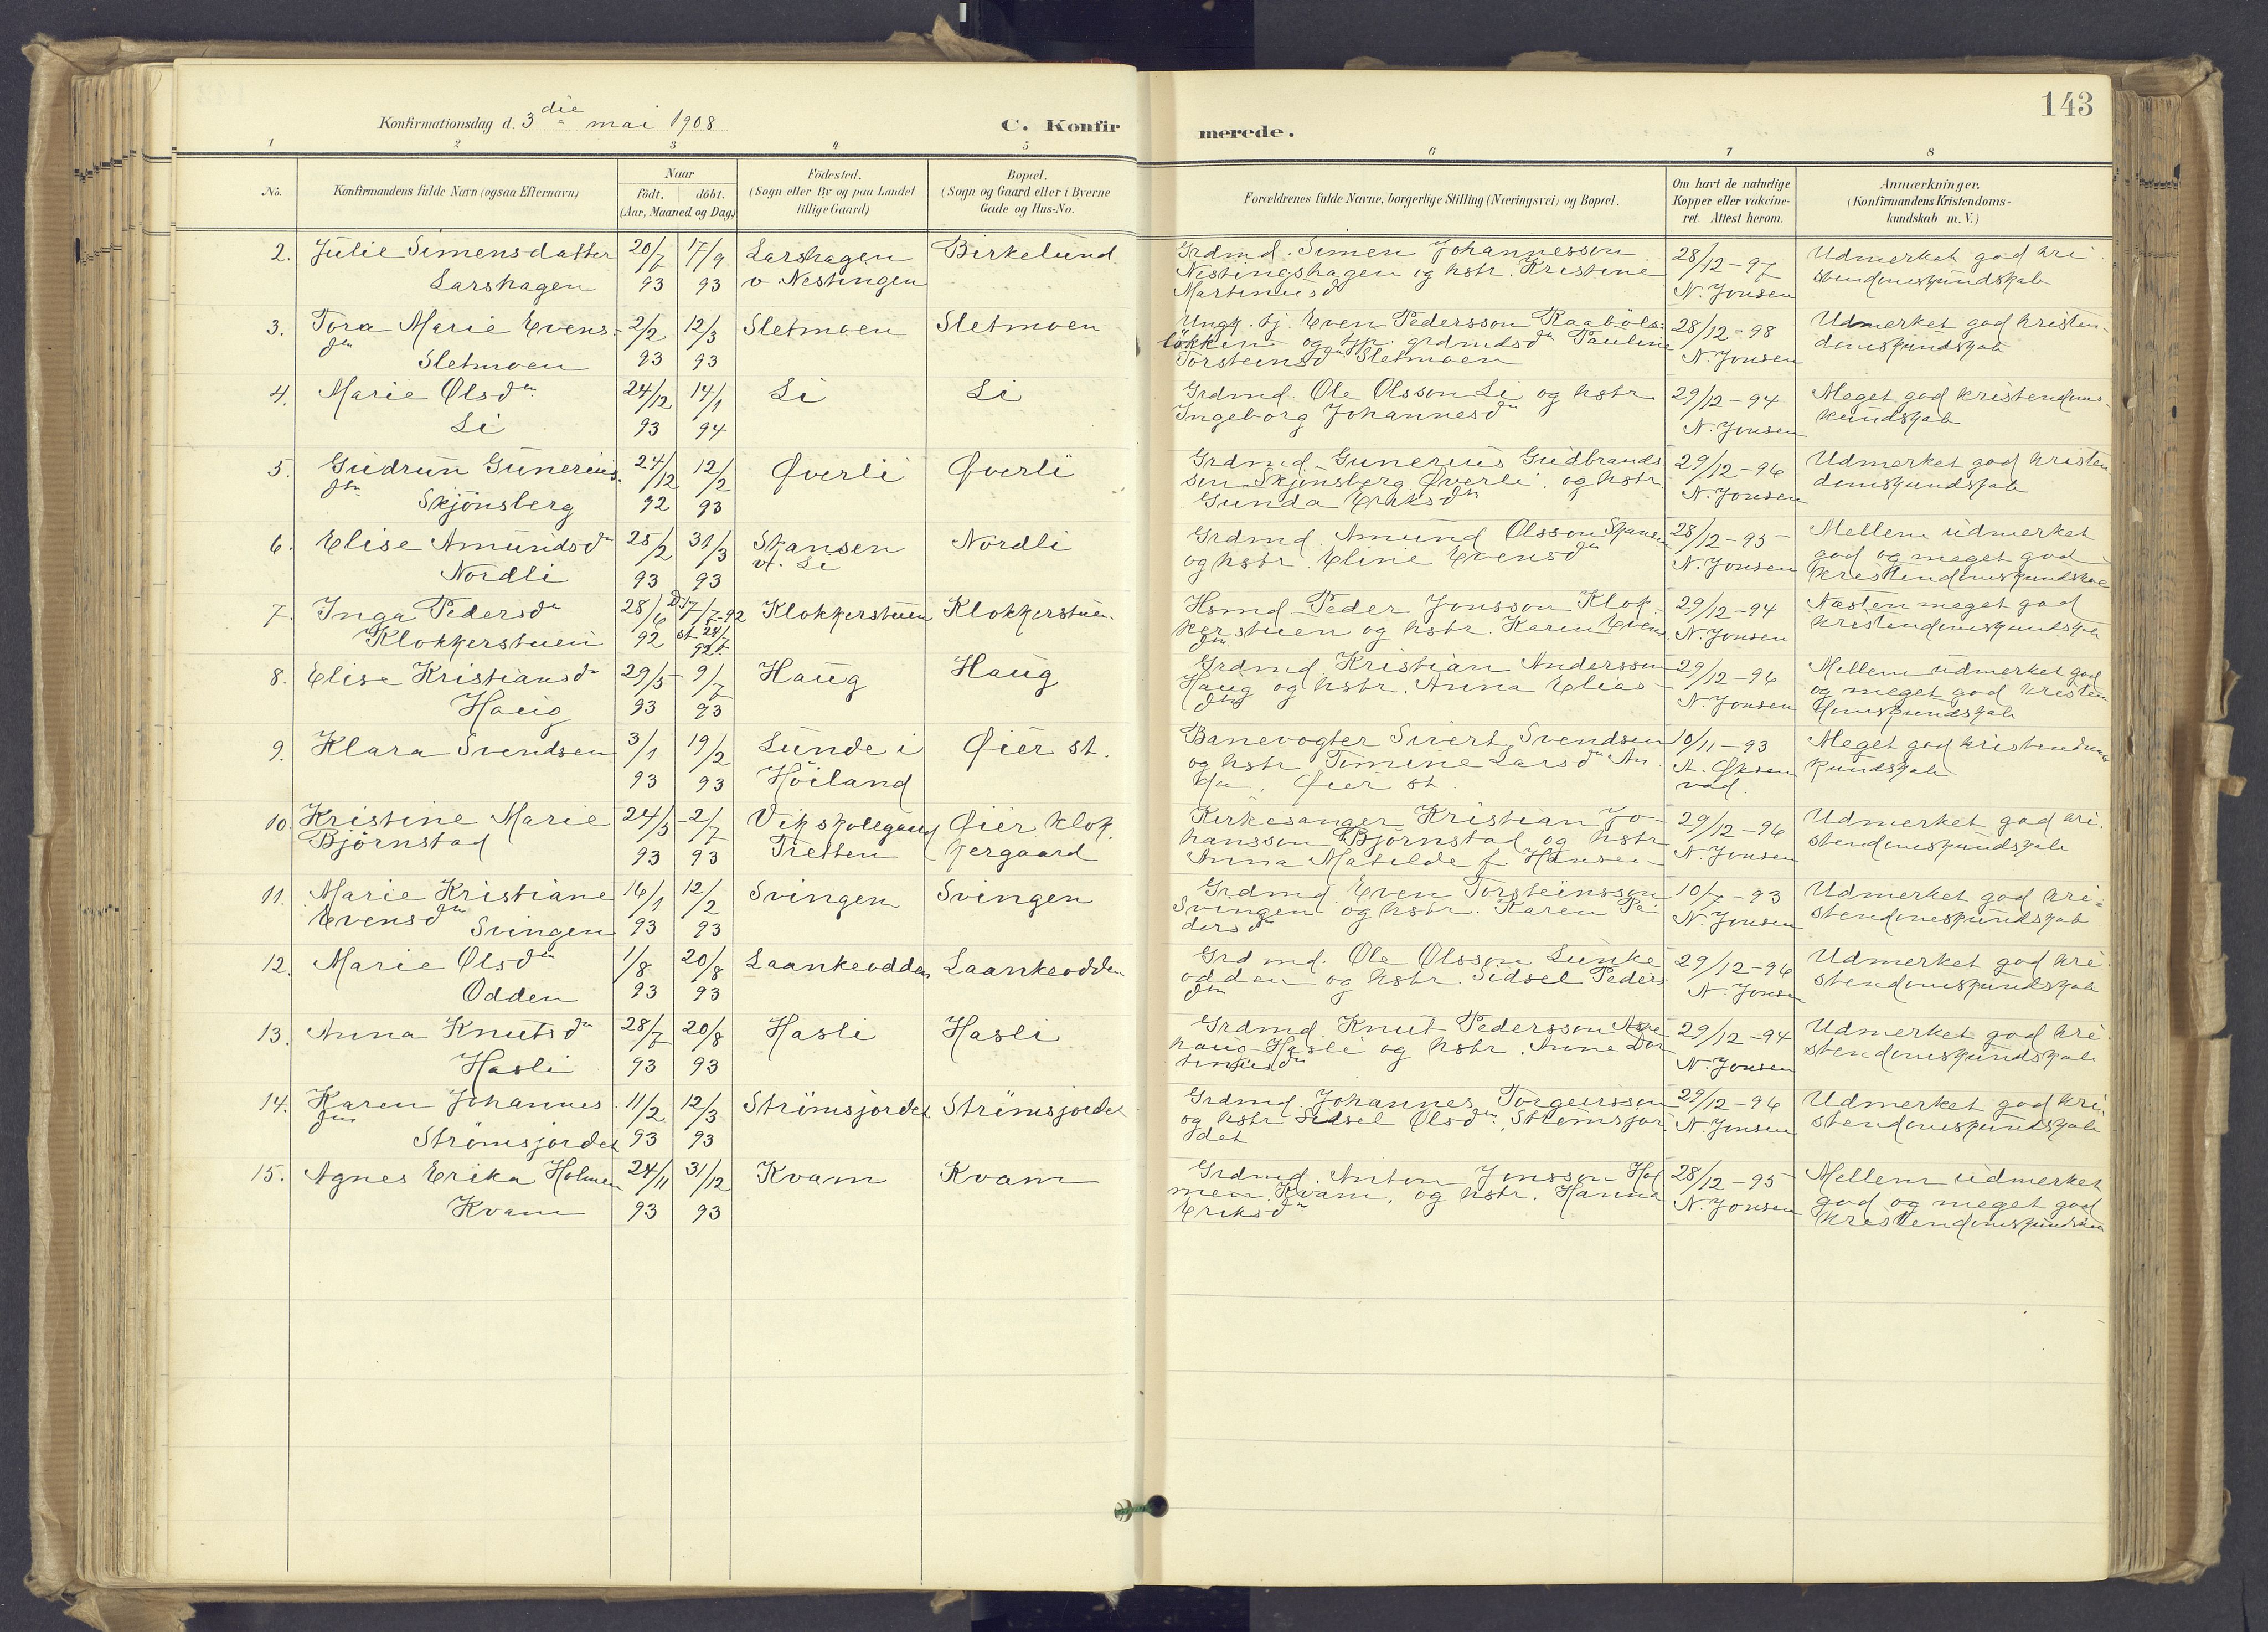 143
Konfirmationsdag d. 3 die mai 1908
C. Konfirmerede.
1 2 3 4 5 6 7 8
No.
Konfirmandens fulde Navn (ogsaa Efternavn)
Naar
födt. döbt.
(Aar, Maaned og Dag)
Födested.
(Sogn eller By og paa Landet
tillige Gaard)
Bopæl.
(Sogn og Gaard eller i Byerne
Gade og Hus-No.
Forældrenes fulde Navne, borgerlige Stilling (Næringsvei) og Bopæl.
Om havt de naturlige
Kopper eller vakcine-
ret. Attest herom.
Anmærkninger.
(Konfirmandens Kristendoms-
kundskab m.V.)
2. Julie Simensdatter 20/7 17/9 Larshagen Birkelund
Larshagen 93 93 v. Nestingen
Grdmd. Simen Johannesson
Nestingshagen og hstr. Kristine
Martinusd
28/12-97
N. Jonsen
Udmerket god kri
stendomskundskab
3. Tora Marie Evens- 2/2 12/3 Sletmoen Sletmoen
dtr
Sletmoen 93 93
Ungk. tj. Even Pedersson Raaböls-
lökken og pp. grdmdsdtr Pauline
Torsteinsdtr Sletmoen
28/12-98
N. Jonsen
Udmerket god kristen-
domskundskab
4. Marie Olsdtr 24/12 14/1 Li Li
Li 93 94
Grdmd. Ole Olsson Li og hstr
Ingeborg Johannesdtr
29/12-94
N. Jonsen
Meget god kristendoms-
kundskab
5. Gudrun Gunerius- 24/12 12/2 Øverli Øverli
dtr
Skjönsberg 92 93
Grdmd. Gunerius Gudbrands
son Skjönsberg Øverli og hstr.
Gunda Eriksdtr
29/12-96
N. Jonsen
Udmerket god kristen
domskundskab
6. Elise Amundsdr 25/2 31/3 Skansen Nordli
Nordli 93 93 v. Li
Grdmd. Amund Olsson Skansen
og hstr. Eline Evensdtr
28/12-95
N. Jonsen
Mellem udmerket
god og meget god
kristendomskundskab
7. Inga Pedersdtr 28/6 17/7-92 Klokkerstuen Klokkerstuen.
Klokkerstuen 92 st 24/7
92
Hsmd Peder Jonsson Klok-
kerstuen og hstr. Karen Evens
dtr
29/12-94
N. Jonsen
Næsten meget god
kristendomskundskab
8. Elise Kristiansdr 29/5 9/7 Haug Haug
Haug 93 93
Grdmd Kristian Andersson
Haug og hstr. Anna Elias-
dtr
29/12-96
N. Jonsen
Mellem udmerket god
og meget god kristen
domskundskab
9. Klara Svendsen 3/1 19/2 Lunde i Øier st.
93 93 Höiland
Banevogter Sivert Svendsen
og hstr Tomine Larsdtr An
da, Øier st.
10/11-93
A. Øksen
vad.
Meget god kristendoms
kundskab
10. Kristine Marie 24/5 2/7 Vik skolegaard Øier klok
Björnstad 93 93 Tretten kergaard
Kirkesanger Kristian Jo-
hansson Björnstad og hstr
Anna Matilde f. Hansen
29/12-96
N. Jonsen
Udmerket god kri.
stendomskundskab
11. Marie Kristiane 16/1 12/2 Svingen Svingen
Evensdtr Svingen 93 93
Grdmd. Even Torsteinsson
Svingen og hstr. Karen Pe-
dersdtr
10/7-93
N. Jonsen
Udmerket god kri-
stendomskundskab
12. Marie Olsdtr 1/8 20/8 Laankeodden Laankeodden
Odden 93 93
Grdmd. Ole Olsson Lunke
odden og hstr. Sidsel Peders
dtr
29/12-96
N. Jonsen
Udmerket god kri
stendomskundskab
13. Anna Knutsdtr 28/7 20/8 Hasli Hasli
Hasli 93 93
Grdmd. Knut Pedersson
haug Hasli og hstr. Anne Dor
29/12-94
N. Jonsen
Udmerket god kri
stendomskundskab
14. Karen Johannes 11/2 12/3 Strömsjordet Strömsjordet
dtr
Strömsjordet 93 93
Grdmd Johannes Torgeirsson
og hstr Sidsel Olsdtr, Strömsjor
det
29/12-96
N. Jonsen
Udmerket god kri.
stendomskundskab
15. Agnes Erika Holmen 24/11 31/12 Kvam Kvam
Kvam 93 93
Grdmd. Anton Jonsson Hol
men Kvam, og hstr. Hanna
Eriksdtr
28/12-95
N. Jonsen
Mellem udmerket
god og meget god
kristendomskundskab